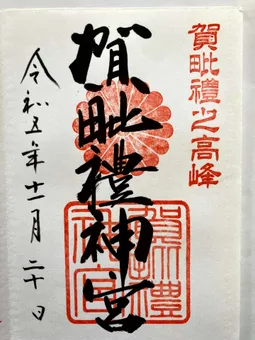 賀毗禮之高峰
賀毗禮神宮
賀毗禮神宮
令和五年十一月二十日